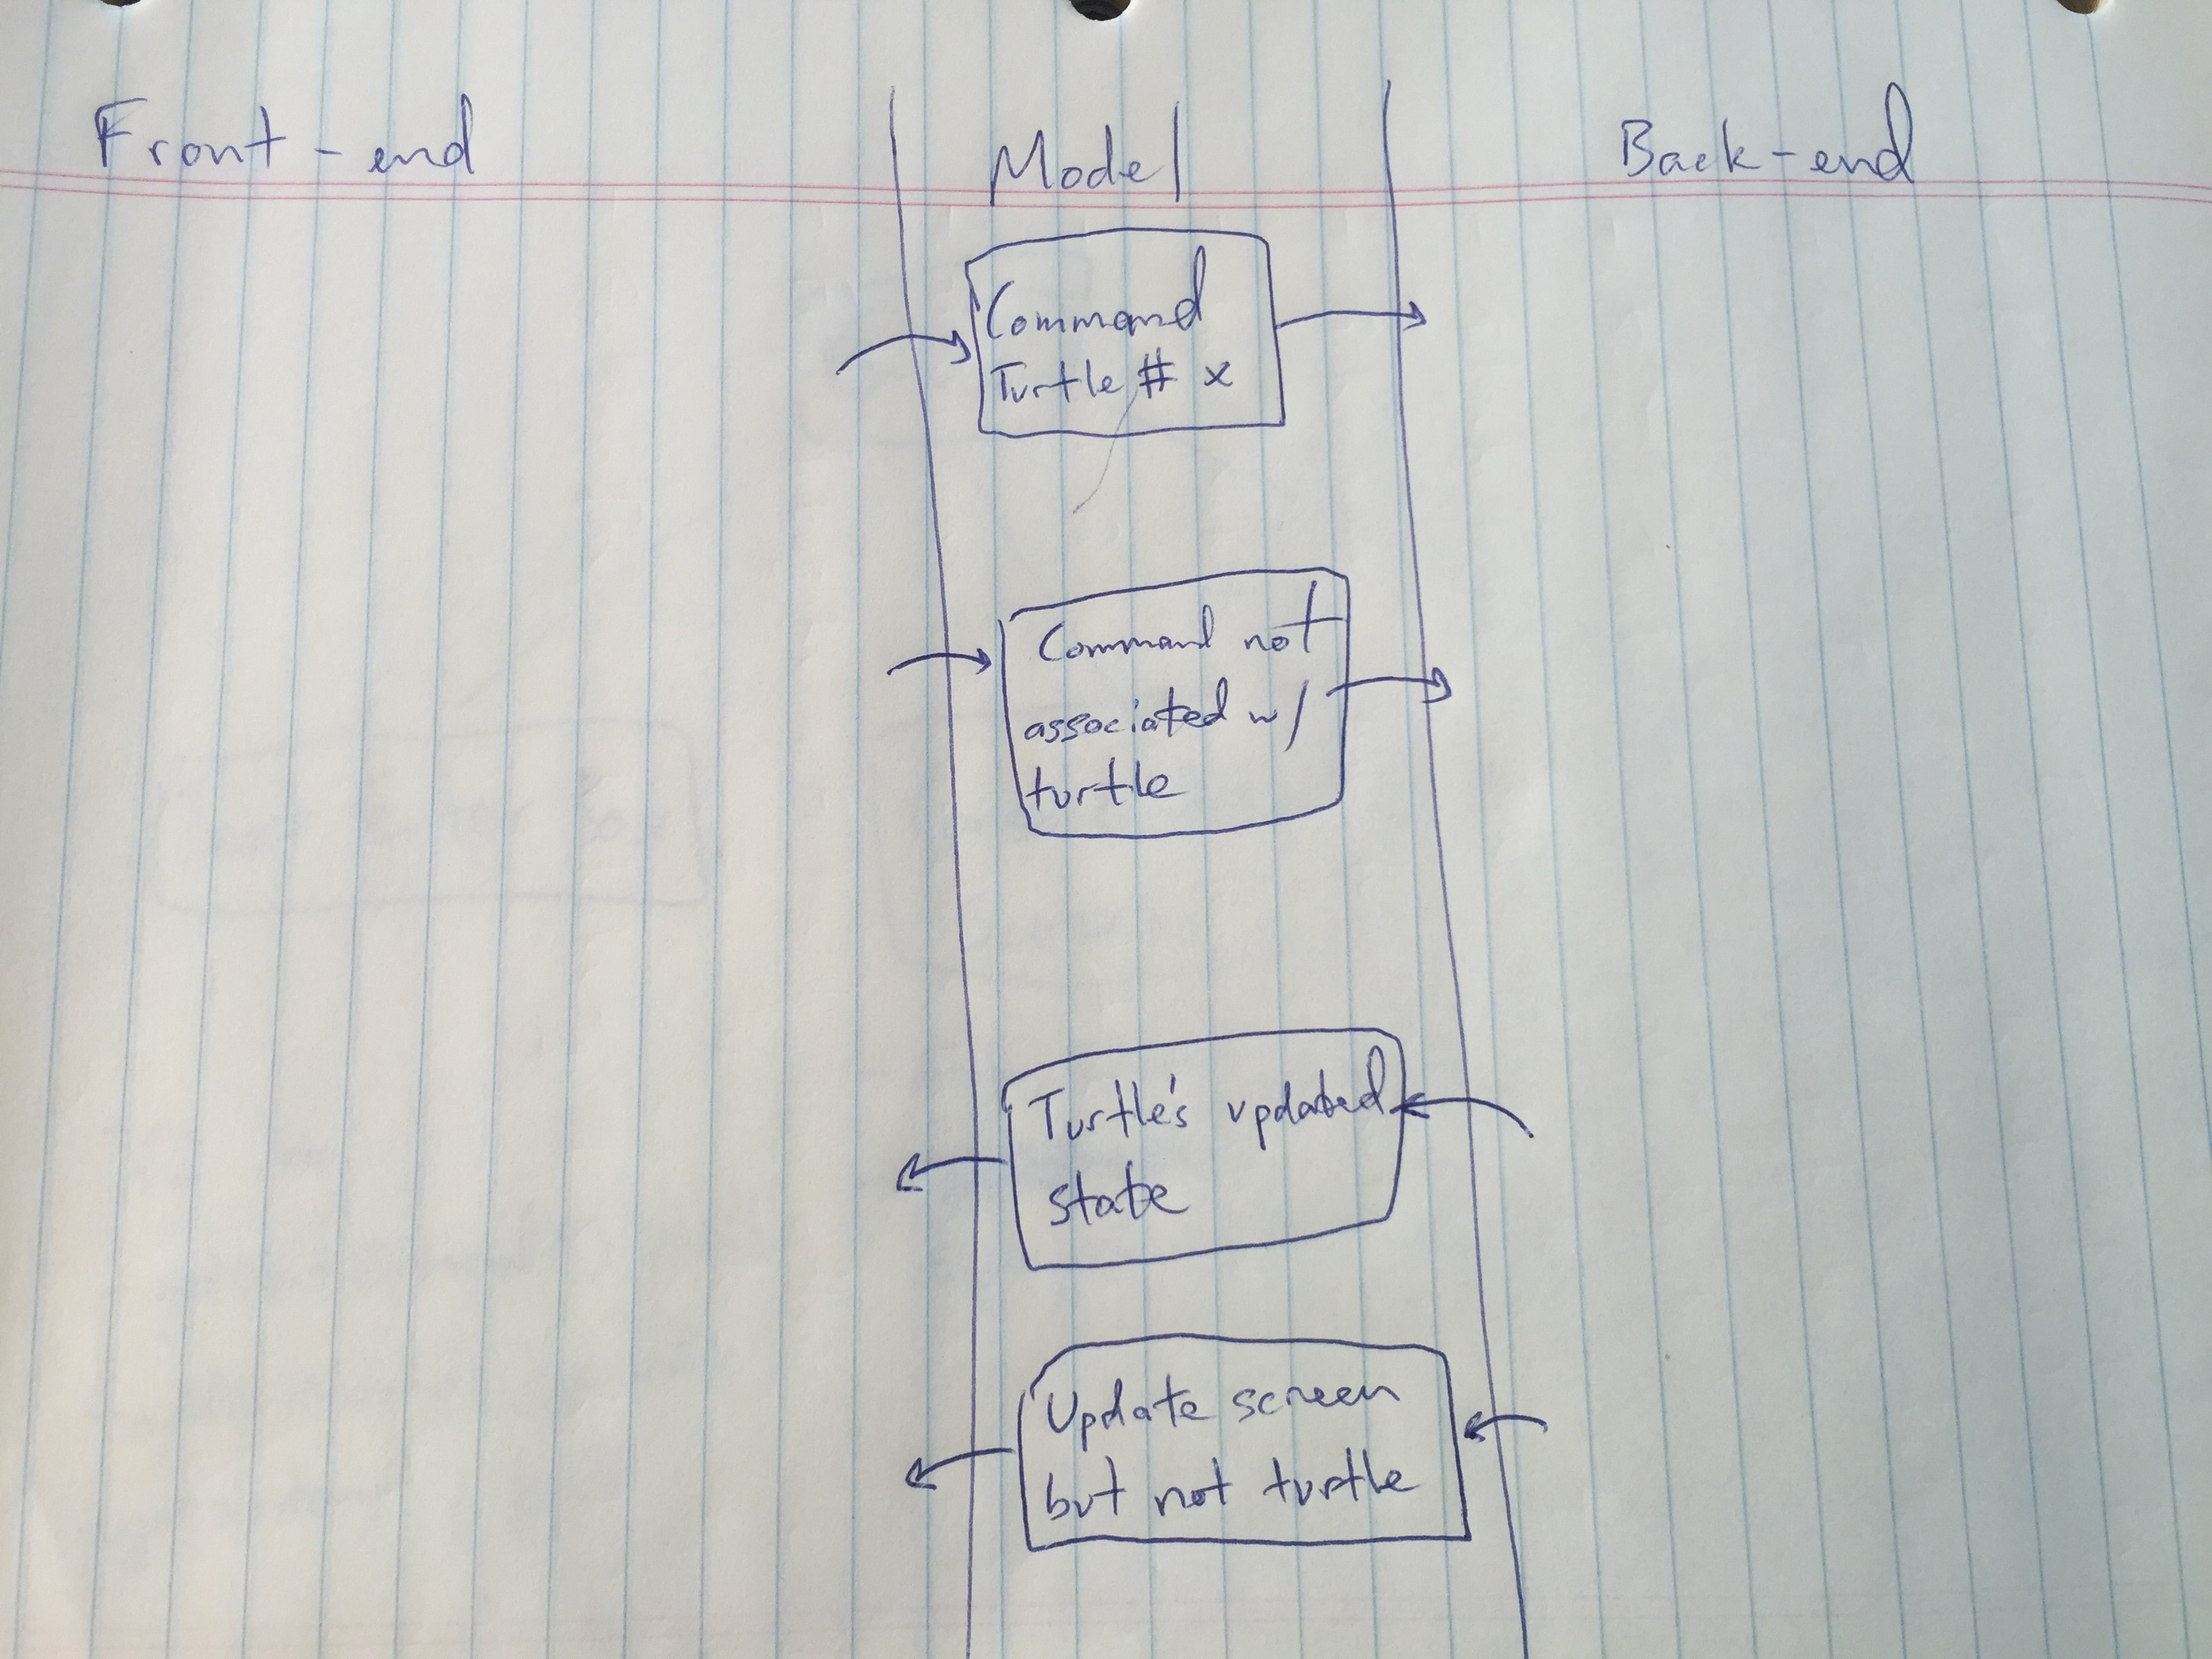 Front-end
Model
Back-end
Command
Turtle # x
Command not
associated w/
turtle
Turtle's updated
state
Update screen
but not turtle